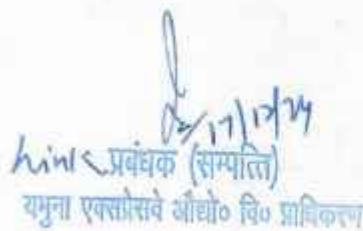 17/12/24
प्रबंधक (सम्पत्ति)
यमुना एक्सप्रेसवे औद्यो० वि० प्राधिकरण